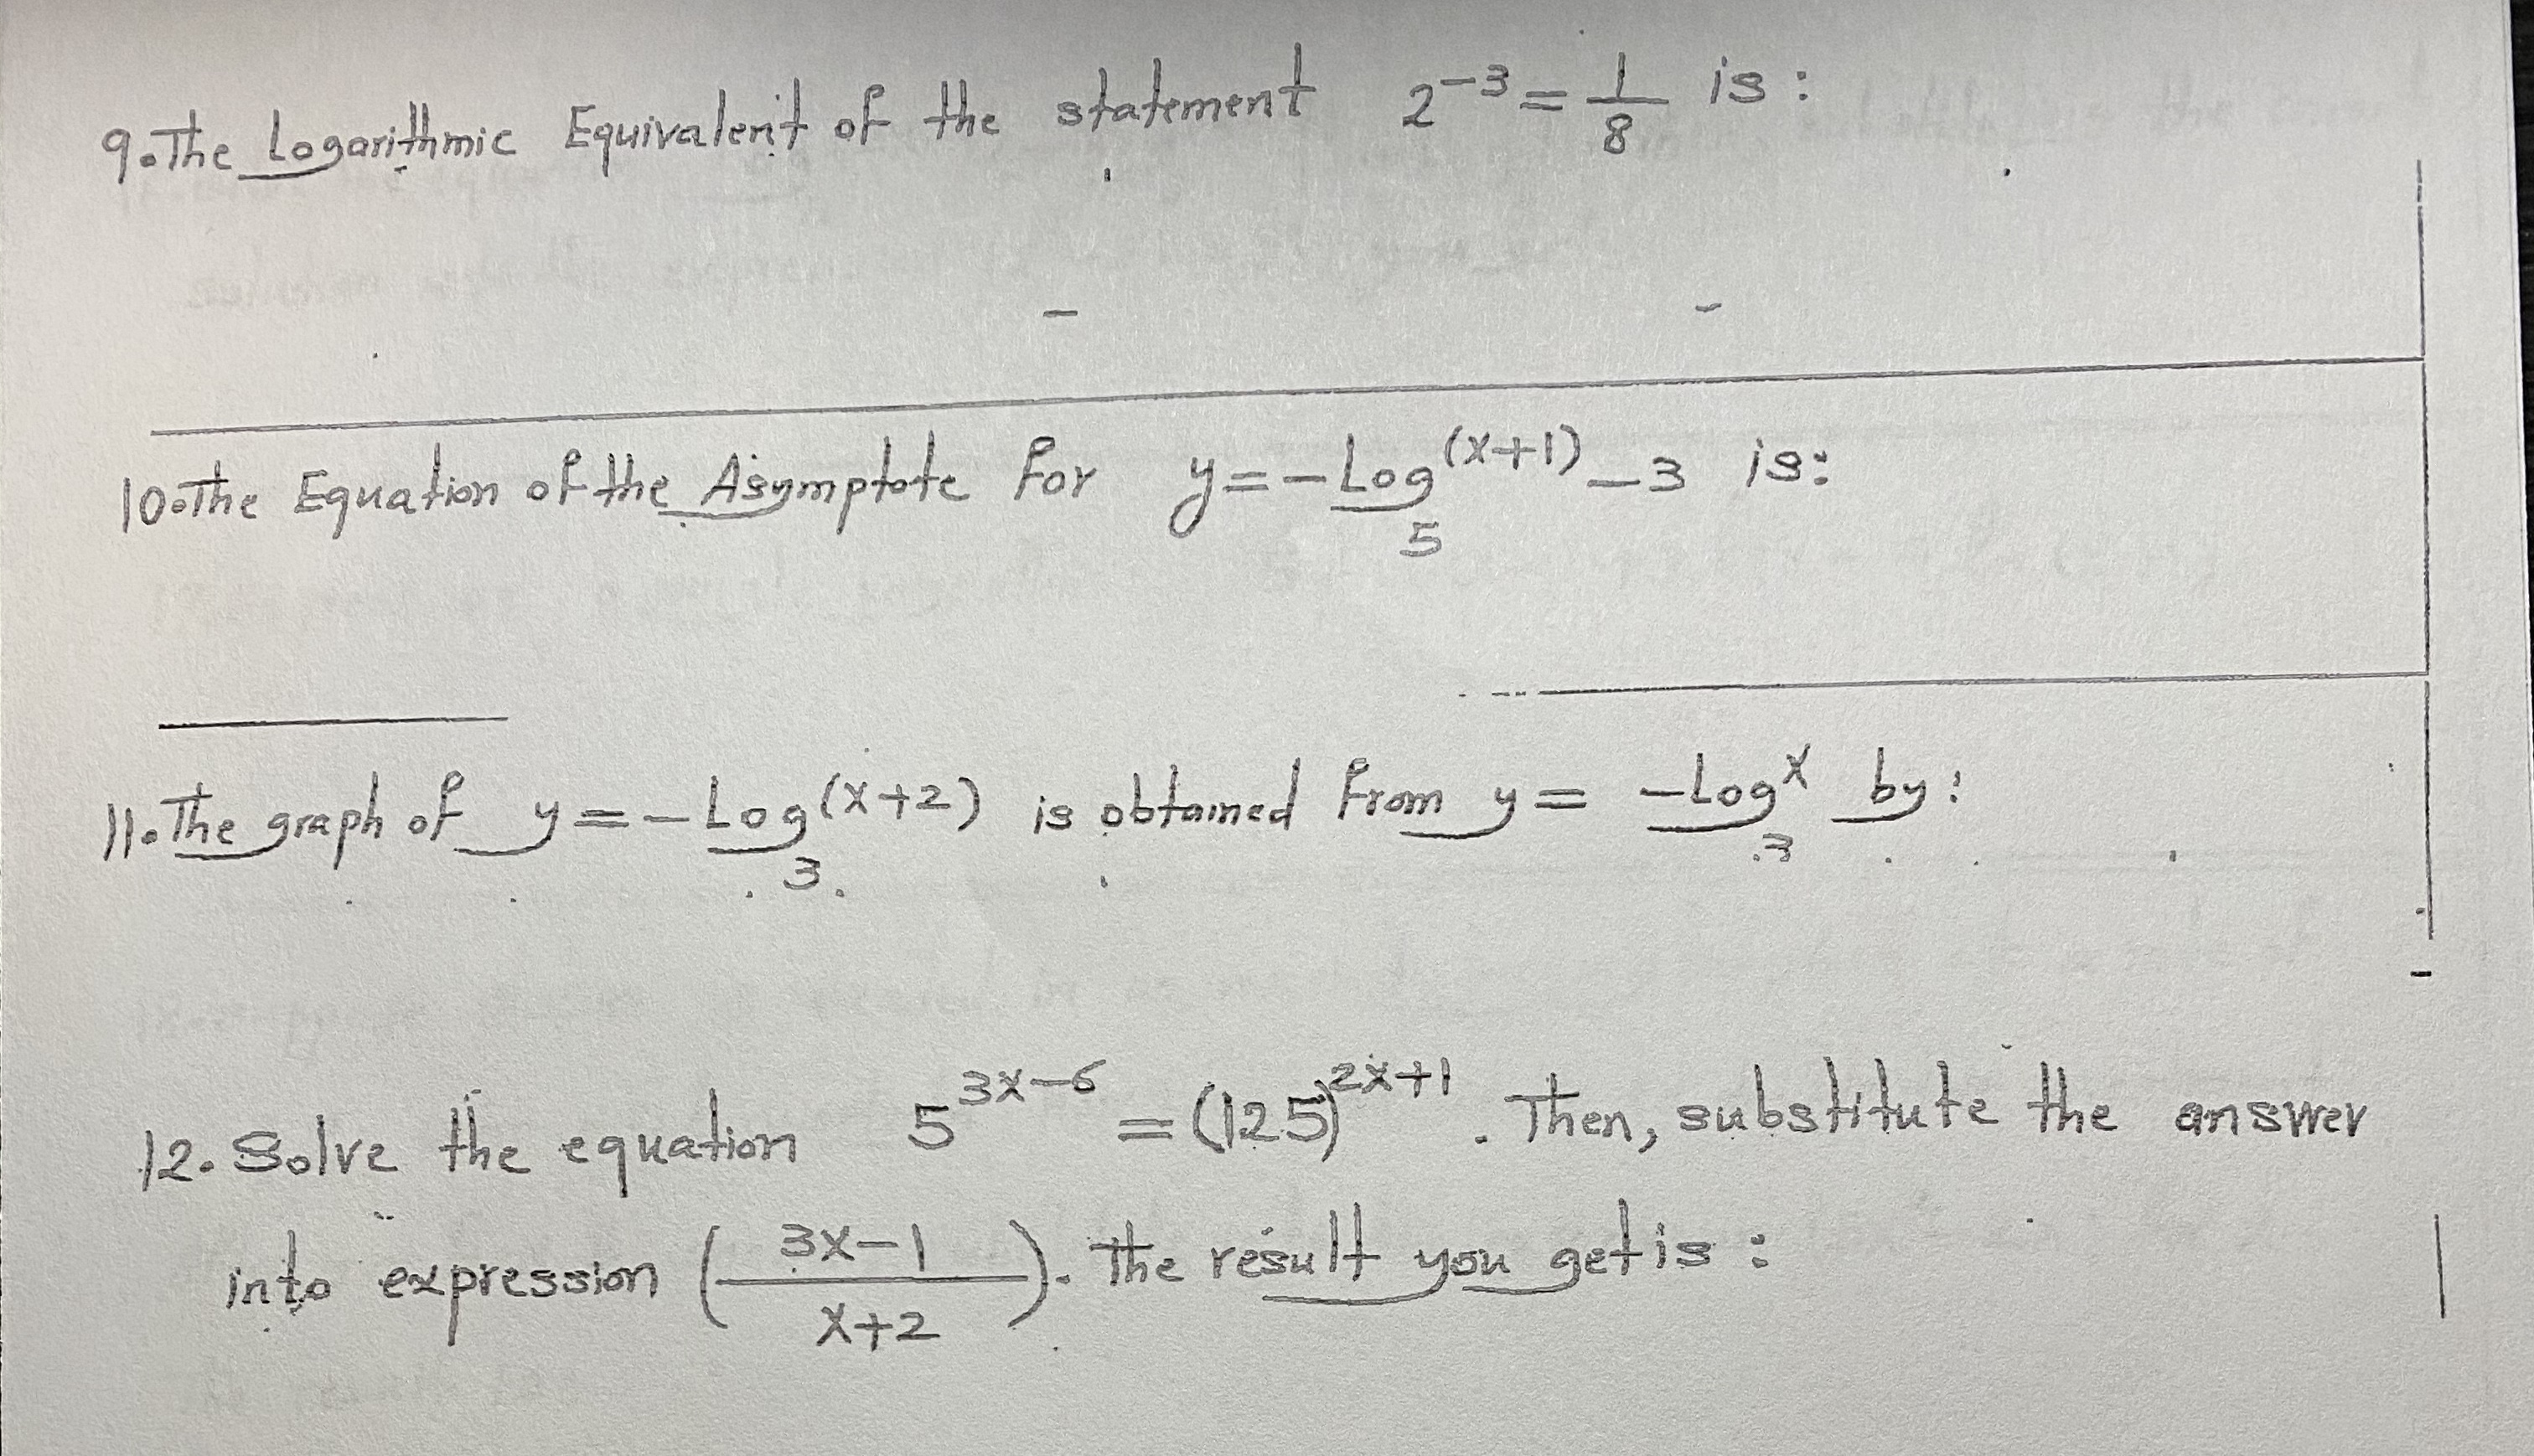 9. The Logarithmic Equivalent of the statement 2⁻³ = 1/8 is:
10. The Equation of the Asymptote for y = -Log₅^(x+1) - 3 is:
11. The graph of y = -Log₃^(x+2) is obtained from y = -Log₃^x by:
12. Solve the equation 5^(3x-6) = (125)^(2x+1). Then, substitute the answer
into expression ((3x-1)/(x+2)). The result you get is: